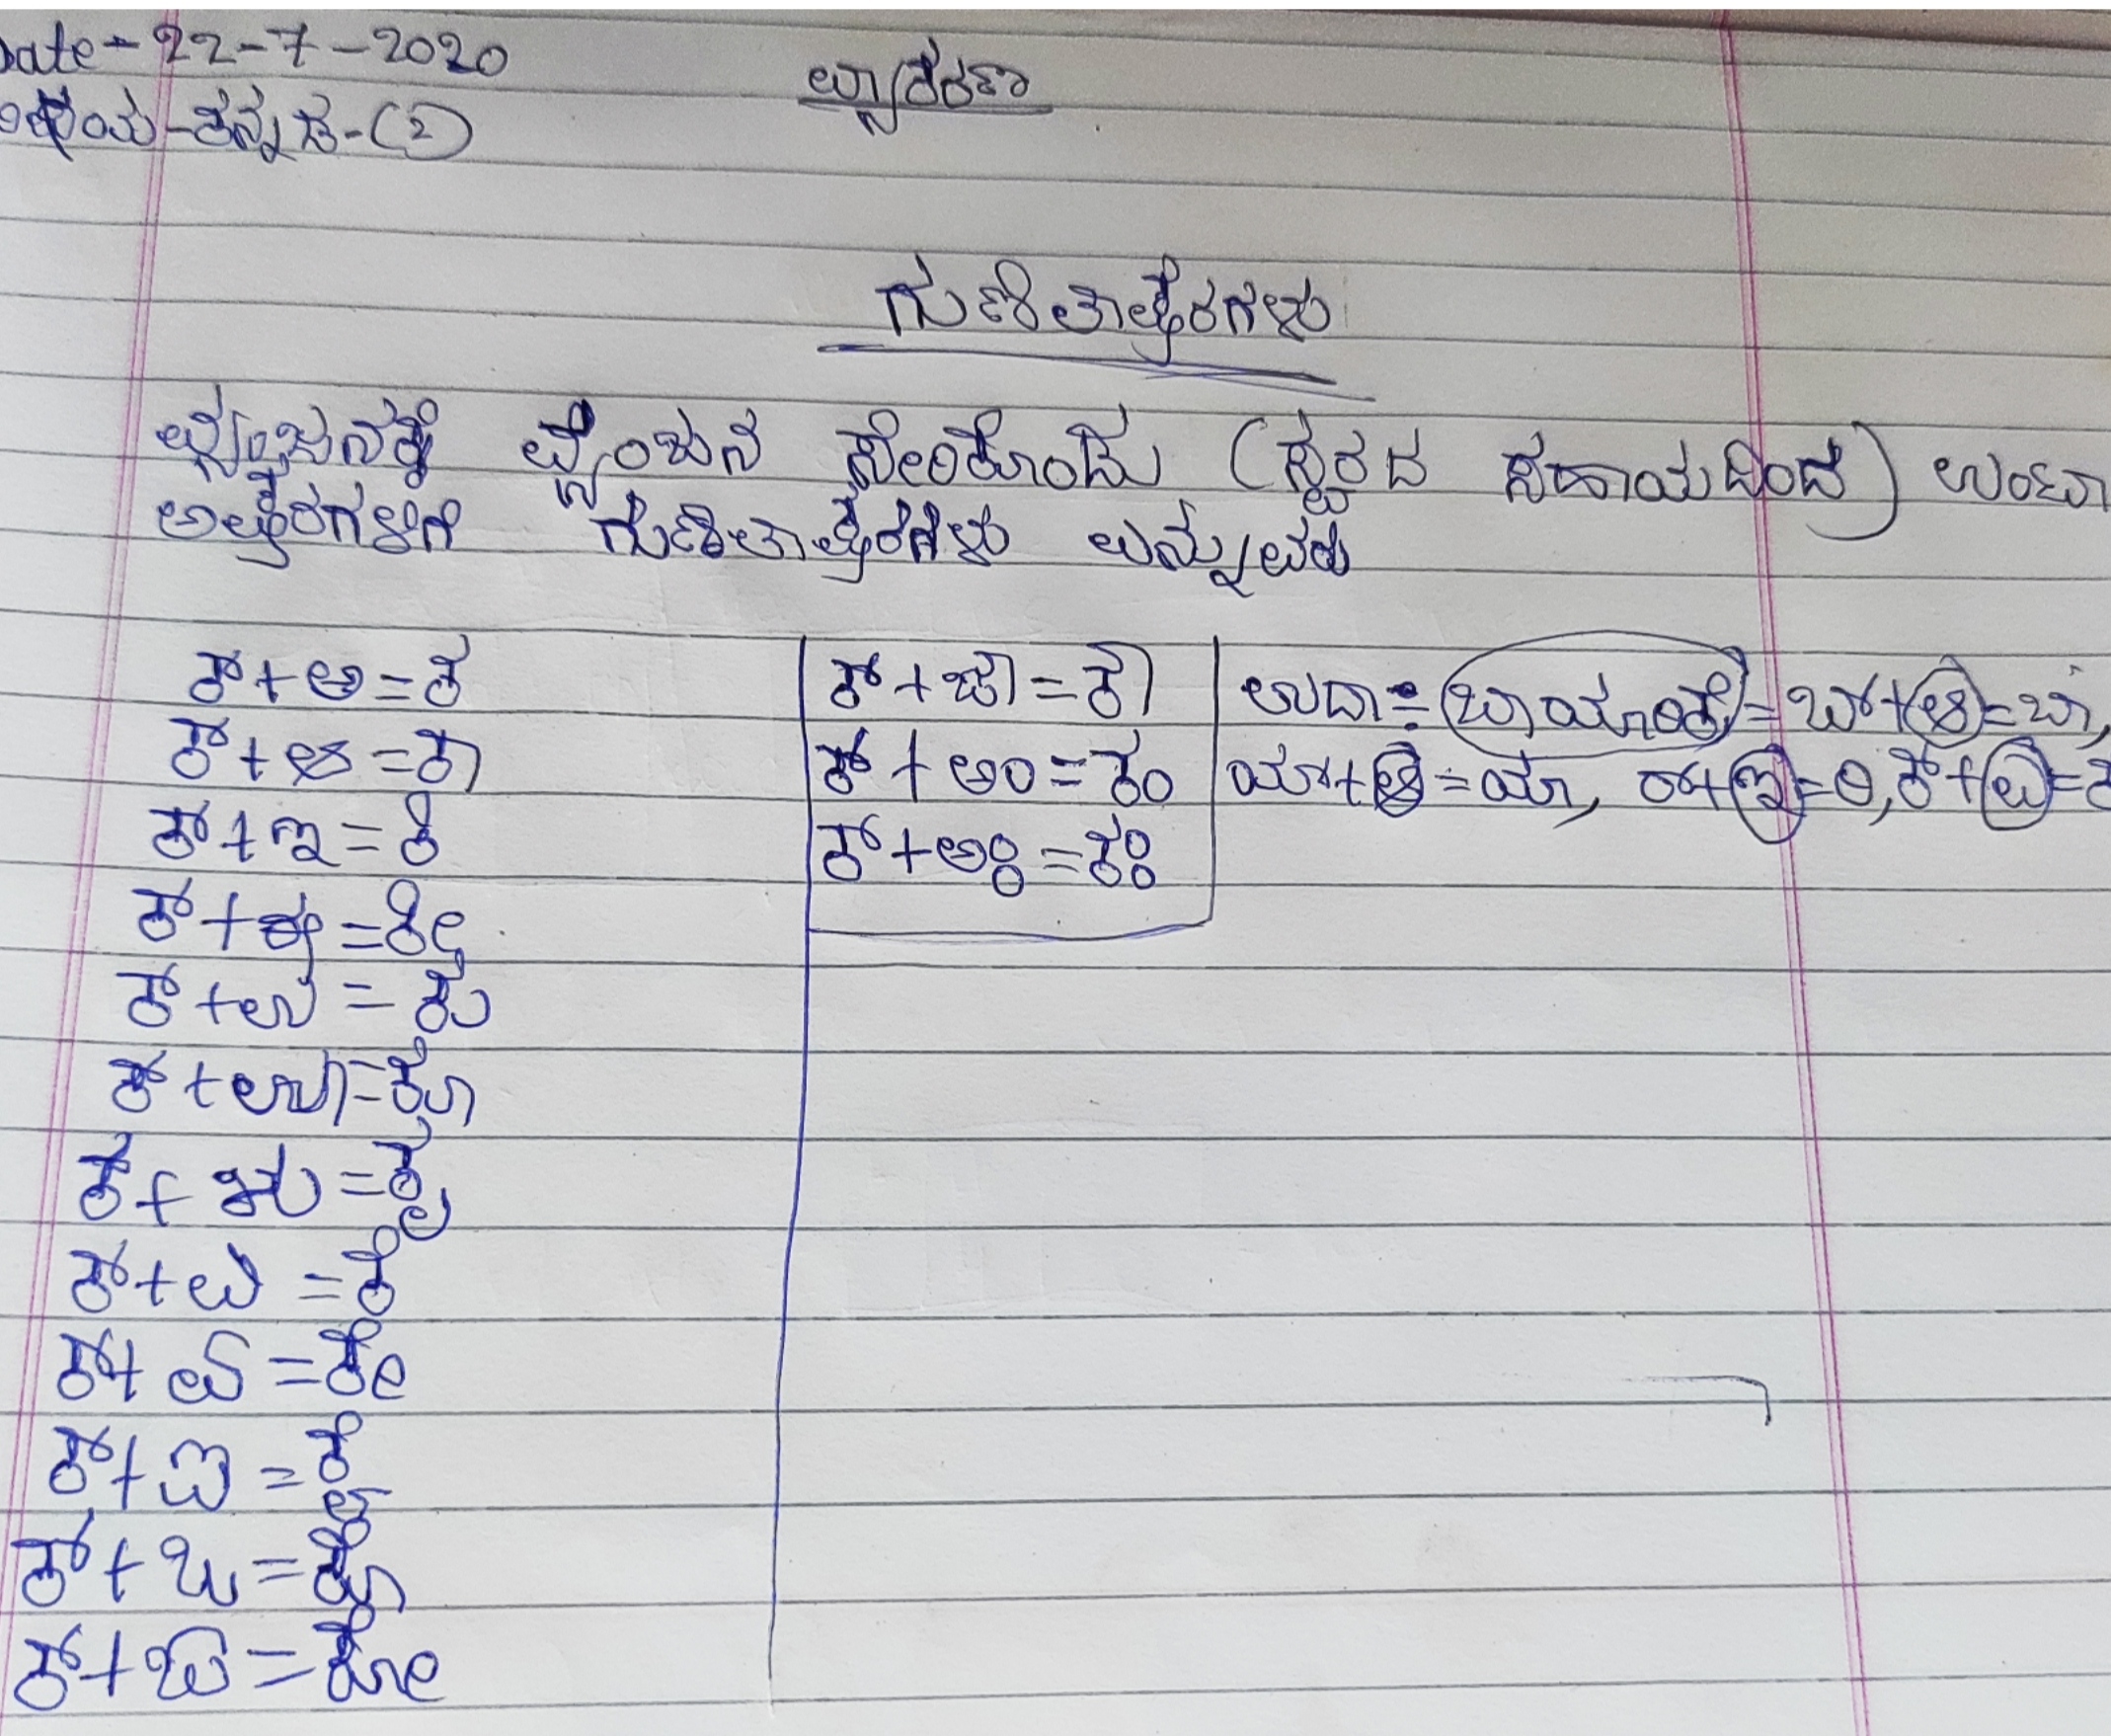 Date - 22-7-2020
ವ್ಯಾಕರಣ
ವಿಷಯ-ಕನ್ನಡ-(2)
ಗುಣಿತಾಕ್ಷರಗಳು
ವ್ಯಂಜನಕ್ಕೆ ವ್ಯಂಜನ ಸೇರಿಕೊಂಡು (ಸ್ವರದ ಸಹಾಯದಿಂದ) ಉಂಟಾ
ಅಕ್ಷರಗಳಿಗೆ ಗುಣಿತಾಕ್ಷರಗಳು ಎನ್ನುವರು
ಕ್+ಅ=ಕ
ಕ್+ಆ=ಕಾ
ಕ್+ಇ=ಕಿ
ಕ್+ಈ=ಕೀ
ಕ್+ಉ=ಕು
ಕ್+ಊ=ಕೂ
ಕ+ಋ=ಕೃ
ಕ್+ಎ=ಕೆ
ಕ್+ಏ=ಕೇ
ಕ್+ಐ=ಕೈ
ಕ್+ಒ=ಕೊ
ಕ್+ಓ=ಕೋ
ಕ್+ಔ=ಕೌ
ಕ್+ಅಂ=ಕಂ
ಕ್+ಅಃ=ಕಃ
ಉದಾ:- ಬಾಯಾರಿಕೆ=ಬ್+ಆ=ಬಾ,
ಯ್+ಆ=ಯಾ, ರ್+ಇ=ರಿ, ಕ್+ಎ=ಕೆ